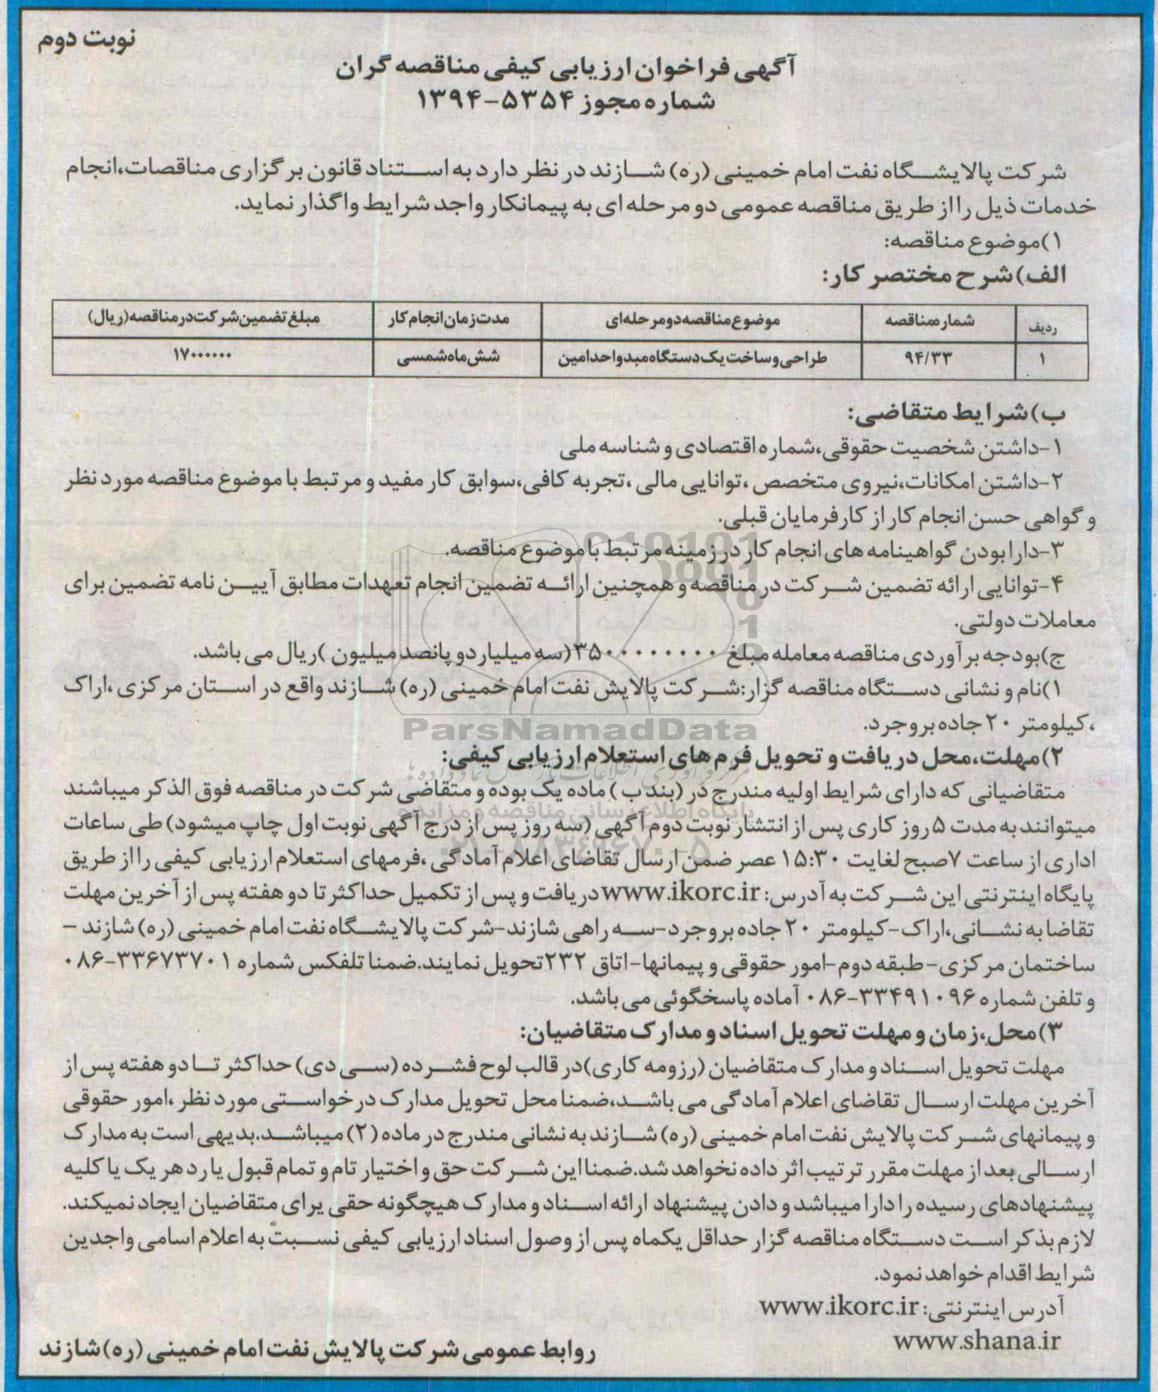 نوبت دوم
آگهی فراخوان ارزیابی کیفی مناقصه گران
شماره مجوز ۵۳۵۴-۱۳۹۴
شرکت پالایشگاه نفت امام خمینی (ره) شازند در نظر دارد به استناد قانون برگزاری مناقصات،انجام
خدمات ذیل را از طریق مناقصه عمومی دو مرحله ای به پیمانکار واجد شرایط واگذار نماید.
۱)موضوع مناقصه:
الف)شرح مختصر کار:
ردیف شماره مناقصه موضوع مناقصه دو مرحله ای مدت زمان انجام کار مبلغ تضمین شرکت در مناقصه (ریال)
۱ ۹۴/۳۳ طراحی و ساخت یک دستگاه مبدو احد امین شش ماه شمسی ۱۷۰۰۰۰۰۰
ب)شرایط متقاضی:
۱-داشتن شخصیت حقوقی،شماره اقتصادی و شناسه ملی
۲-داشتن امکانات،نیروی متخصص ،توانایی مالی ،تجربه کافی،سوابق کار مفید و مرتبط با موضوع مناقصه مورد نظر
و گواهی حسن انجام کار از کارفرمایان قبلی.
۳-دارا بودن گواهینامه های انجام کار در زمینه مرتبط با موضوع مناقصه.
۴-توانایی ارائه تضمین شرکت در مناقصه و همچنین ارائه تضمین انجام تعهدات مطابق آیین نامه تضمین برای
معاملات دولتی.
ج)بودجه برآوردی مناقصه معامله مبلغ ۳۵۰۰۰۰۰۰۰۰۰(سه میلیارد و پانصد میلیون )ریال می باشد.
۱)نام و نشانی دستگاه مناقصه گزار:شرکت پالایش نفت امام خمینی (ره) شازند واقع در استان مرکزی ،اراک
،کیلومتر ۲۰ جاده بروجرد.
ParsNamadData
۲)مهلت،محل دریافت و تحویل فرم های استعلام ارزیابی کیفی:
متقاضیانی که دارای شرایط اولیه مندرج در (بند ب ) ماده یک بوده و متقاضی شرکت در مناقصه فوق الذکر میباشند
پایگاه اطلاع رسانی مناقصه و مزایده
میتوانند به مدت ۵ روز کاری پس از انتشار نوبت دوم آگهی (سه روز پس از درج آگهی نوبت اول چاپ میشود) طی ساعات
اداری از ساعت ۷صبح لغایت ۱۵:۳۰ عصر ضمن ارسال تقاضای اعلام آمادگی ،فرمهای استعلام ارزیابی کیفی را از طریق
پایگاه اینترنتی این شرکت به آدرس: www.ikorc.ir دریافت و پس از تکمیل حداکثر تا دو هفته پس از آخرین مهلت
تقاضا به نشانی،اراک-کیلومتر ۲۰ جاده بروجرد-سه راهی شازند-شرکت پالایشگاه نفت امام خمینی (ره) شازند –
ساختمان مرکزی- طبقه دوم-امور حقوقی و پیمانها-اتاق ۲۳۲تحویل نمایند.ضمنا تلفکس شماره ۳۳۶۷۳۷۰۱-۰۸۶
و تلفن شماره ۳۳۴۹۱۰۹۶-۰۸۶ آماده پاسخگوئی می باشد.
۳)محل،زمان و مهلت تحویل اسناد و مدارک متقاضیان:
مهلت تحویل اسناد و مدارک متقاضیان (رزومه کاری)در قالب لوح فشرده (سی دی) حداکثر تا دو هفته پس از
آخرین مهلت ارسال تقاضای اعلام آمادگی می باشد،ضمنا محل تحویل مدارک درخواستی مورد نظر ،امور حقوقی
و پیمانهای شرکت پالایش نفت امام خمینی (ره) شازند به نشانی مندرج در ماده (۲) میباشد.بدیهی است به مدارک
ارسالی بعد از مهلت مقرر ترتیب اثر داده نخواهد شد.ضمنا این شرکت حق و اختیار تام و تمام قبول یا رد هر یک یا کلیه
پیشنهادهای رسیده را دارا میباشد و دادن پیشنهاد ارائه اسناد و مدارک هیچگونه حقی برای متقاضیان ایجاد نمیکند.
لازم بذکر است دستگاه مناقصه گزار حداقل یکماه پس از وصول اسناد ارزیابی کیفی نسبت به اعلام اسامی واجدین
شرایط اقدام خواهد نمود.
آدرس اینترنتی: www.ikorc.ir
www.shana.ir
روابط عمومی شرکت پالایش نفت امام خمینی (ره) شازند